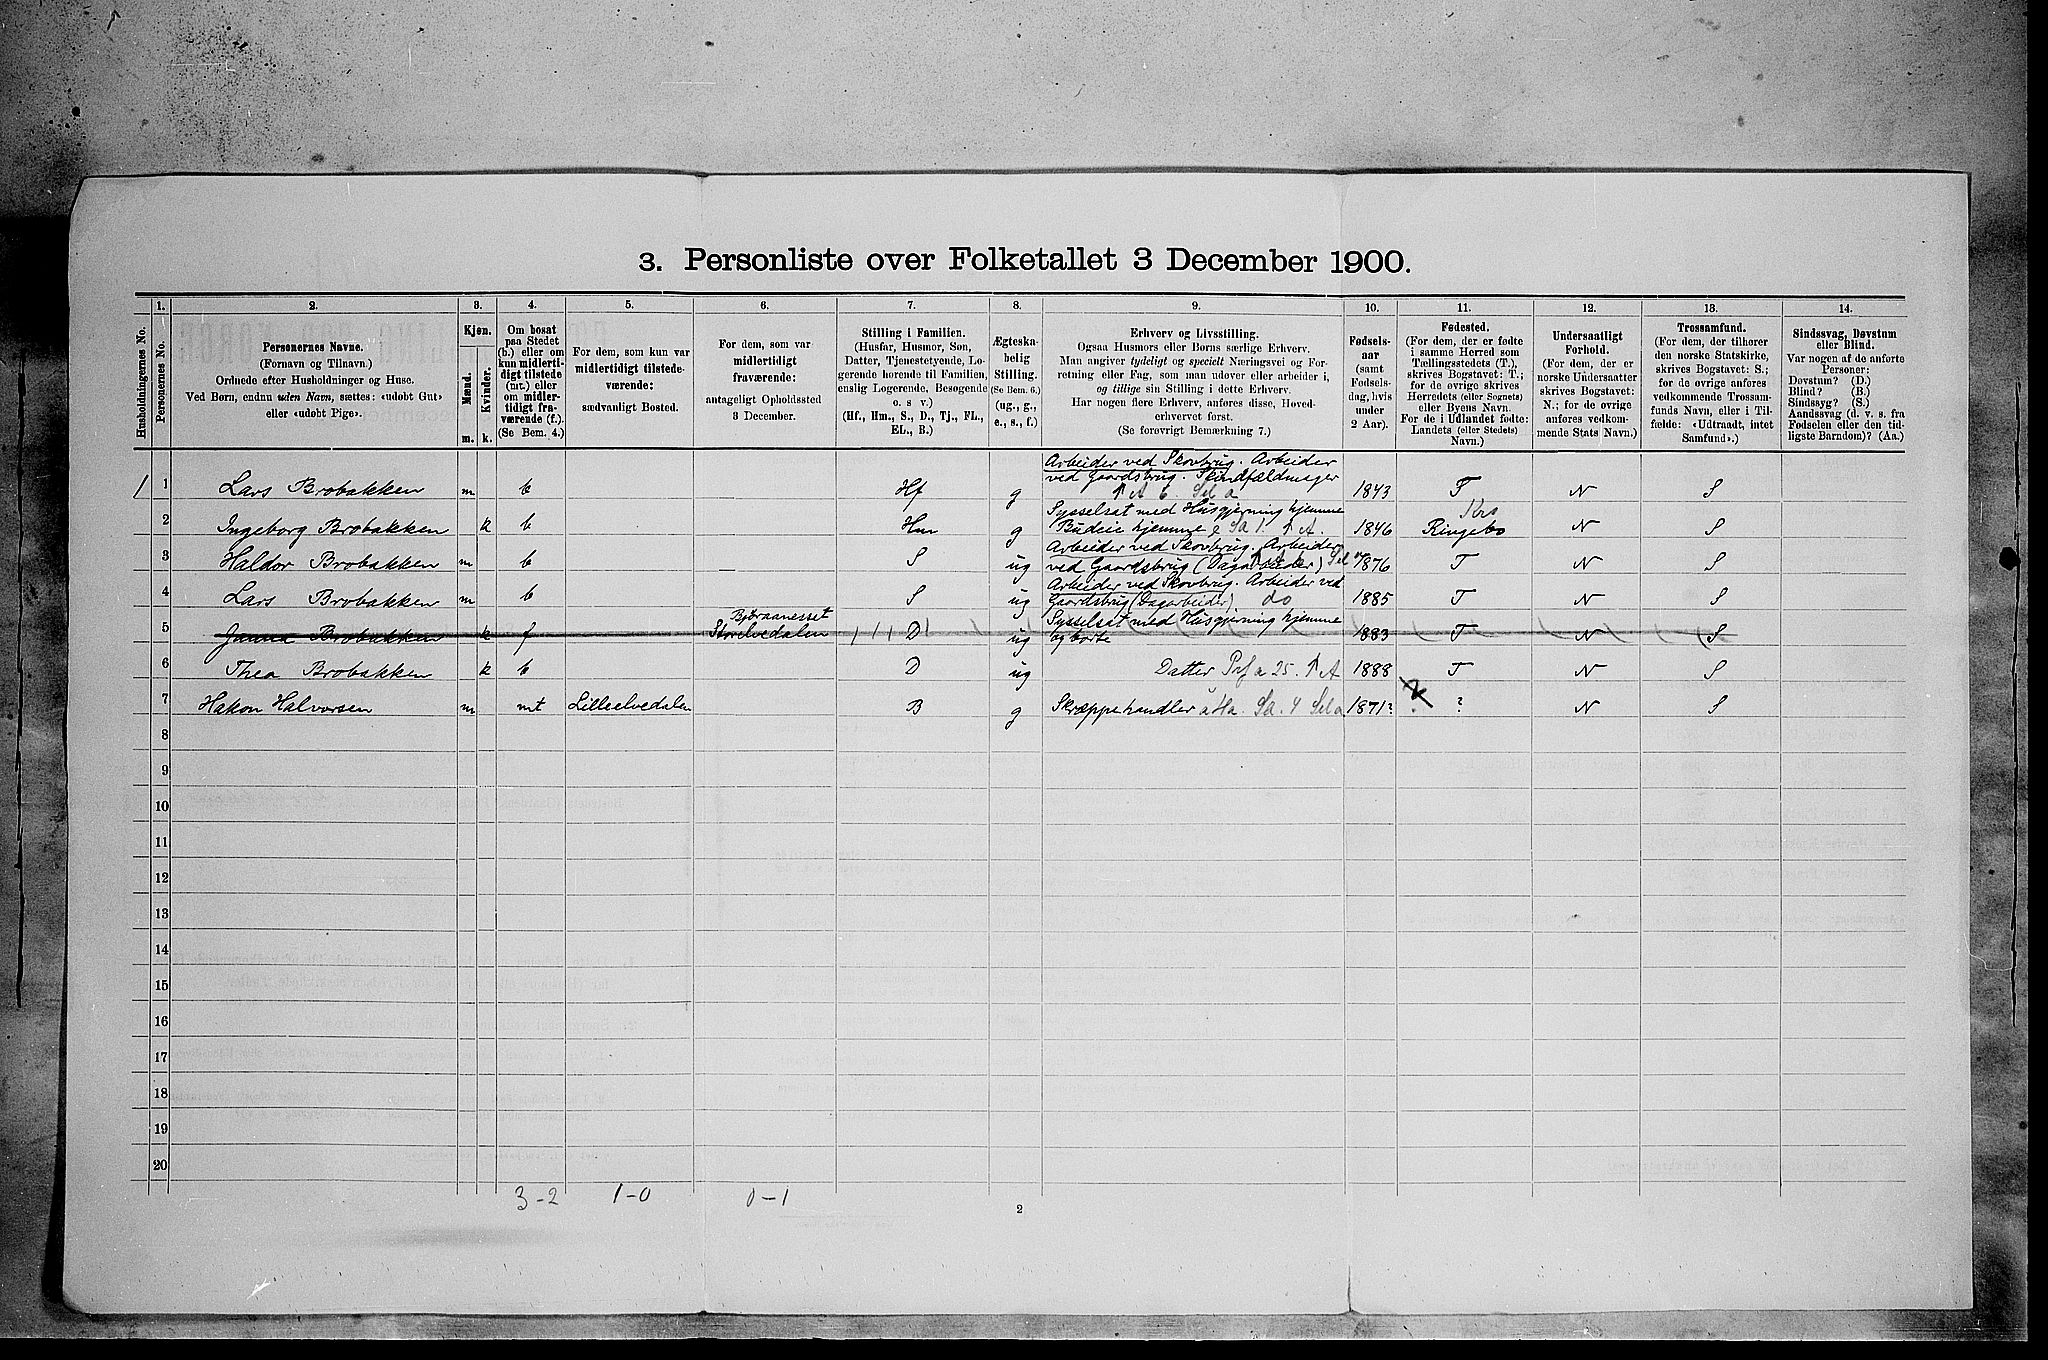 3. Personliste over Folketallet 3 December 1900.
Husholdningernes No.
1.
Personernes No.
2.
Personernes Navne.
(Fornavn og Tilnavn.)
Ordnede efter Husholdninger og Huse.
Ved Børn, endnu uden Navn, sættes: «udøbt Gut»
eller «udøbt Pige».
3.
Kjøn.
Mænd.
m.
Kvinder.
k.
4.
Om bosat
paa Stedet
(b.) eller om
kun midlerti-
digt tilstede
(mt.) eller
om midler-
tidigt fra-
værende (f.).
(Se Bem. 4.)
5.
For dem, som kun var
midlertidigt tilstede-
værende:
sædvanligt Bosted.
6.
For dem, som var
midlertidigt
fraværende:
antageligt Opholdssted
3 December.
7.
Stilling i Familien.
(Husfar, Husmor, Søn,
Datter, Tjenestetyende, Lo-
gerende hørende til Familien,
enslig Logerende, Besøgende
o. s v.)
(Hf., Hm., S., D., Tj., FL.,
EL., B.)
8.
Ægteska-
belig
Stilling.
(Se Bem. 6.)
(ug., g.,
e., s., f.)
9.
Erhverv og Livsstilling.
Ogsaa Husmors eller Børns særlige Erhverv.
Man angiver tydeligt og specielt Næringsvei og For-
retning eller Fag, som man udøver eller arbeider i,
og tillige sin Stilling i dette Erhverv.
Har nogen flere Erhverv, anføres disse, Hoved-
erhvervet først.
(Se forøvrigt Bemærkning 7.)
10.
Fødsels-
aar
(samt
Fødsels-
dag, hvis
under
2 Aar).
11.
Fødested.
(For dem, der er fødte
i samme Herred som
Tællingsstedets (T.),
skrives Bogstavet: T.;
for de øvrige skrives
Herredets (eller Sognets)
eller Byens Navn.
For de i Udlandet fødte:
Landets (eller Stedets)
Navn.)
12.
Undersaatligt
Forhold.
(For dem, der er
norske Undersaatter
skrives Bogstavet:
N.; for de øvrige
anføres vedkom-
mende Stats Navn.)
13.
Trossamfund.
(For dem, der tilhører
den norske Statskirke,
skrives Bogstavet: S.;
for de øvrige anføres
vedkommende Trossam-
funds Navn, eller i Til-
fælde: «Udtraadt, intet
Samfund».)
14.
Sindssvag, Døvstum
eller Blind.
Var nogen af de anførte
Personer:
Døvstum? (D.)
Blind? (B.)
Sindssyg? (S.)
Aandssvag (d. v. s. fra
Fødselen eller den tid-
ligste Barndom)? (Aa.)
Arbeider ved Skovbrug. Arbeider
1 1 Lars Brobakken m b Hf g ved Gaardsbrug. Skindfældmager 1843 T N S
Sysselsat med Husgjerning hjemme
2 Ingeborg Brobakken k b Hm g Budeie hjemme 1846 Ringebo N S
Arbeider ved Skovbrug. Arbeider
3 Haldor Brobakken m b S ug ved Gaardsbrug (Dagarbeider) 1876 T N S
Arbeider ved Skovbrug. Arbeider ved
4 Lars Brobakken m b S ug Gaardsbrug (Dagarbeider) do 1885 T N S
Bjøraanesset Sysselsat med Husgjerning hjemme
5 Janna Brobakken k f Storelvedalen D ug og borte 1883 T N S
6 Thea Brobakken k b D ug Datter 1888 T N S
7 Hakon Halvorsen m mt Lilleelvedalen B g Skræppehandler 1871? ? N S
8
9
10
11
12
13
14
15
16
17
18
19
20
3-2 1-0 0-1
2